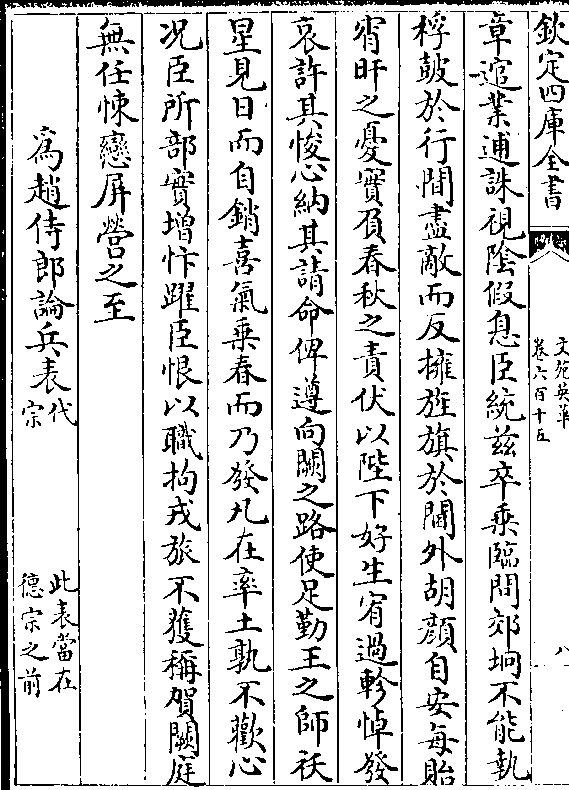 欽定四庫全書
文苑英華
卷六百十五
八
章逭業逋誅視陰假息臣統兹卒乘臨問郊坰不能執
桴鼓於行間盡敵而反擁旌旗於閫外胡顔自安每貽
宵旰之憂實負春秋之責伏以陛下好生宥過軫悼發
哀許其悛心納其請命俾遵向闕之路使足勤王之師祅
星見日而自銷喜氣乗春而乃發凡在率土孰不歡心
况臣所部實增忭躍臣恨以職拘戎旅不獲稱賀闕庭
無任悚戀屏營之至
為趙侍郎論兵表代宗
此表當在
德宗之前